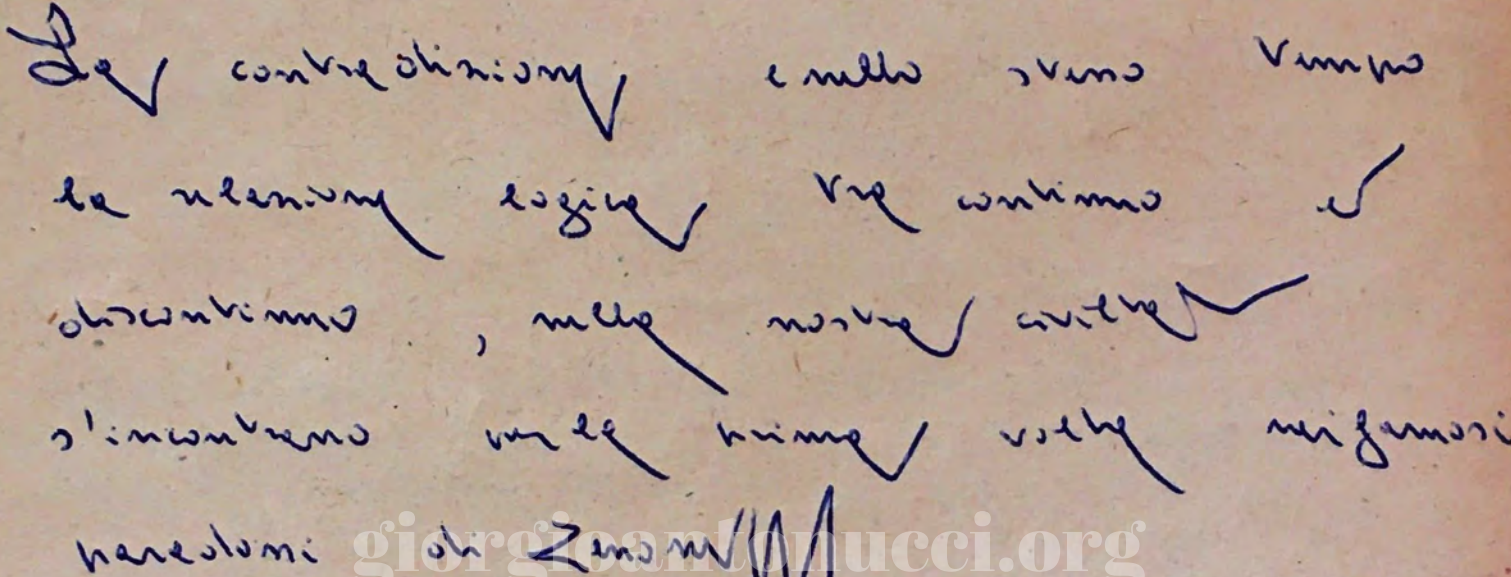 La contraddizione e nello stesso tempo
la relazione logica tra continuo e
discontinuo, nella nostra civiltà
s'incontrano per la prima volta nei famosi
paradossi di Zenone
giorgioantonucci.org